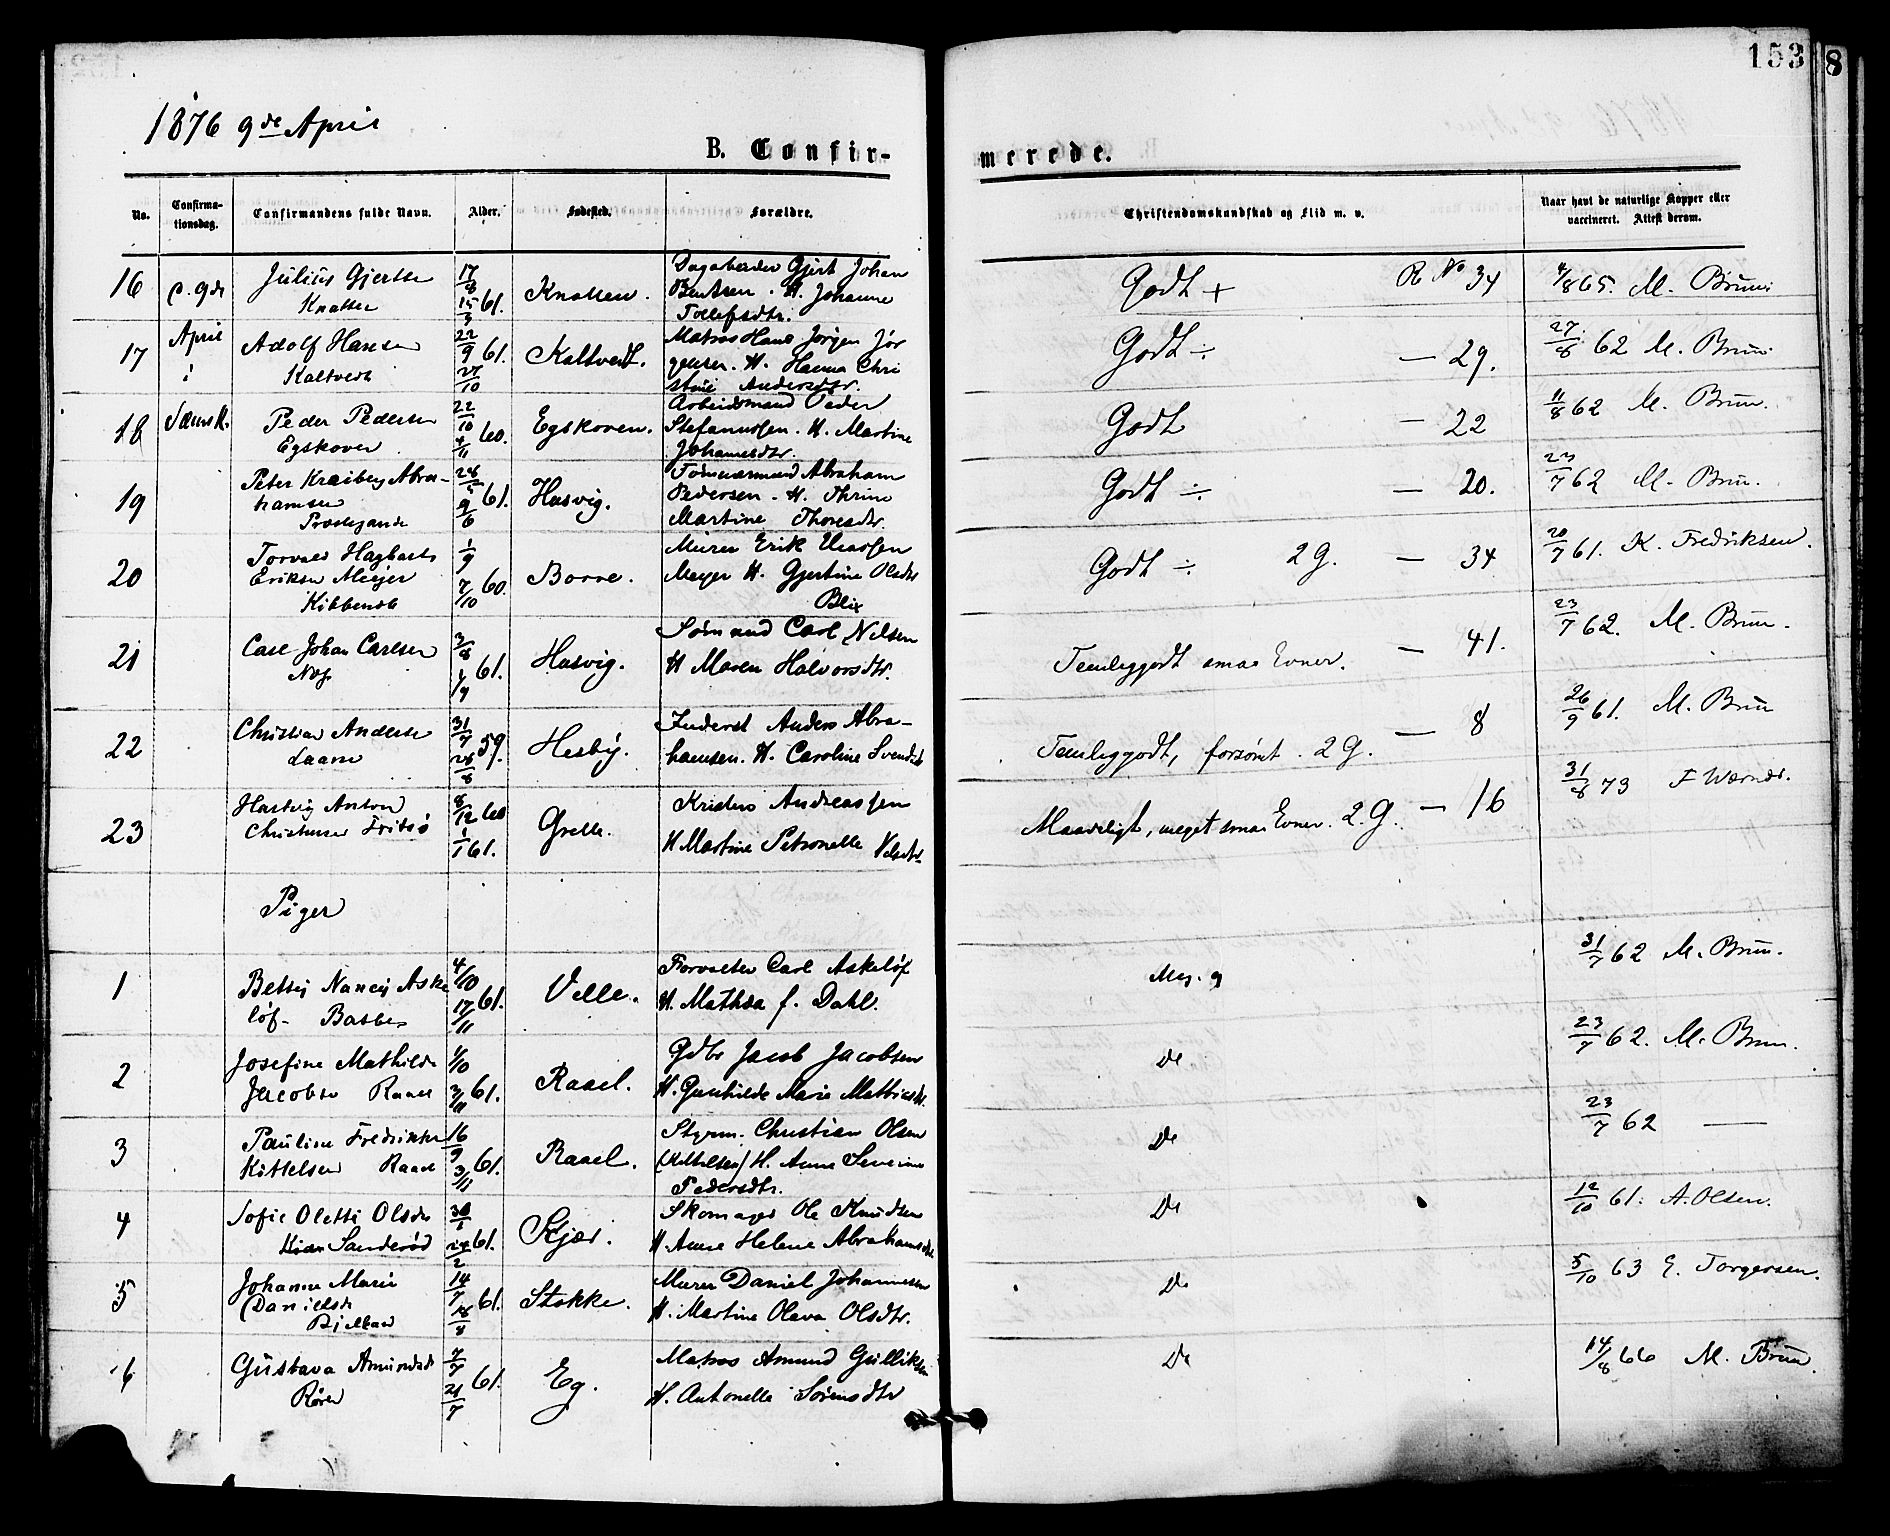 153
8
1876 9de April
B. Confir-
merede.
No.
Confirma-
tionsdag.
Confirmandens fulde Navn.
Alder.
Fødested.
Forældre.
Christendomskundskab og Flid m. v.
Naar havt de naturlige Kopper eller
vaccineret. Attest derom.
16 d. 9de Julius Gjertsen
Knatten
17/8 15/9 61. Knatten.
Gjert Johan
Bentsen. H. Johanne
Tollefsdtr.
Godt + R No 34 4/8 65. M. Bruun
17 April Adolf Hansen
i Kaltvedt
22/9 27/10 61. Kaltvedt.
Matros Hans Jørgen Jør
gensen. H. Hanna Chri
stine Andersdtr.
Godt ÷ — 29. 27/8 62 M. Bruun
18 Peder Pedersen
Egskoven
22/10 4/11 60. Egskoven.
Arbeidsmand Peder
Stefanussen. H. Martine
Johannesdtr.
Godt — 22 11/8 62 M. Bruun.
19 Peter Abra-
hamsen
28/5 9/6 61. Husvig.
Tømmermand Abraham
Pedersen. H. Thrine
Martine Thoresdtr.
Godt ÷ — 20. 23/7 62 M. Bruun.
20 Torvald Hagbart
Eriksen Meyer
1/9 7/10 60. Borre.
Murer Erik
Meyer H. Gjertine Olsdtr
Blix
Godt ÷ 2 G. — 34 20/7 61. K. Fredriksen.
21 Carl Johan Carlsen
Nes
3/8 1/9 61. Husvig.
Sømand Carl Nilsen
H Maren Halvorsdtr.
Temleggodt smaa Evner. — 41. 23/7 62. M. Bruun.
22 Christian Andersen
31/7 28/8 59. Hesby.
Inderst Anders Abra-
hamsen. H. Caroline Svendsd
Temleggodt, forsømt. 2 G. — 8 26/9 61. M. Bruun
23 Hartvig Anton
Christensen Fritsø
8/12 60 1/1 61. Grelle.
Kristen Andreassen
H Martine Petronelle
Maadeligt, meget smaa Evner. 2. G. — 16 31/8 73 F Wærner.
Piger
1 Betty Nancy Aske
løf
4/10 17/11 61. Velle.
Forvalter Carl Askeløf
H. Mathea f. Dahl.
Meg. g 31/7 62 M. Bruun.
2 Josefine Mathilde
Jacobsen Raael
1/10 3/11 61. Raael.
Gdbr Jacob Jacobsen
H. Gunhilde Marie Mathisdtr.
De 23/7 62. M. Bruun.
3 Pauline Fredrikke
Kittelsen Raael
16/9 3/11 61. Raael.
Styrm. Christian Olsen
(Kittilsen) H. Anne Severine
Pedersdtr.
De 23/7 62 —
4 Sofie Oletti Olsdtr
Sanderød
30/1 24/2 61. Skjær.
Skomager Ole Knudsen
H. Anne Helene Abrahamsdtr
De 12/10 61. A. Olsen.
5 Johanne Marie
Danielsdtr
14/7 18/8 61. Stokke.
Murer Daniel Johannesen
H. Martine Olava Olsdtr.
De 5/10 63 E. Torgersen.
6 Gustava Amundsdtr
Røren
7/7 21/7 61. Eg.
Matros Amund Gulliksen
H. Antonelle Sørensdtr
De 14/8 66 M. Bruun